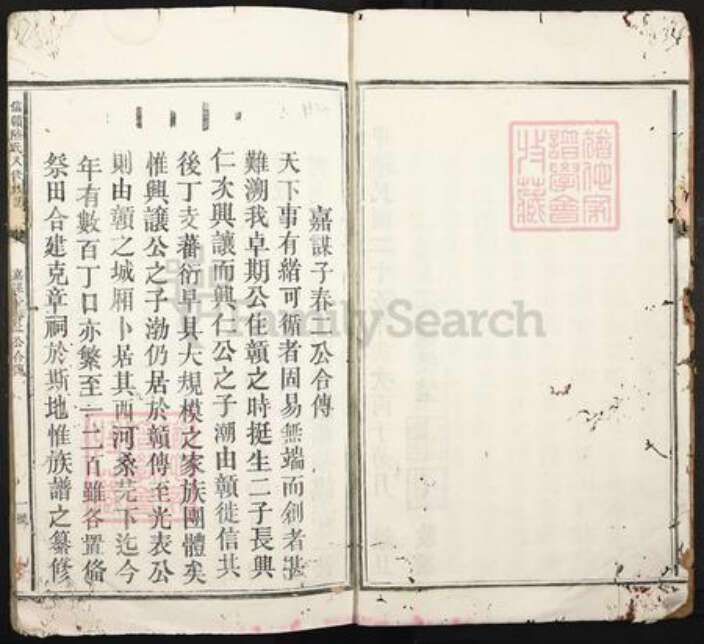 嘉謀子春二公合傳
天下事有緒可循者固易無端而創者甚
難溯我卓期公住贛之時挺生二子長興
仁次興讓而興仁公之子潮由贛徙信其
後丁支蕃衍早具大規模之家族團體矣
惟興讓公之子渤仍居於贛傳至光表公
則由贛之城廂卜居其西河桑芫下迄今
年有數百丁口亦繁至一二百雖各置偹
祭田合建克章祠於斯地惟族譜之纂修
FamilySearch